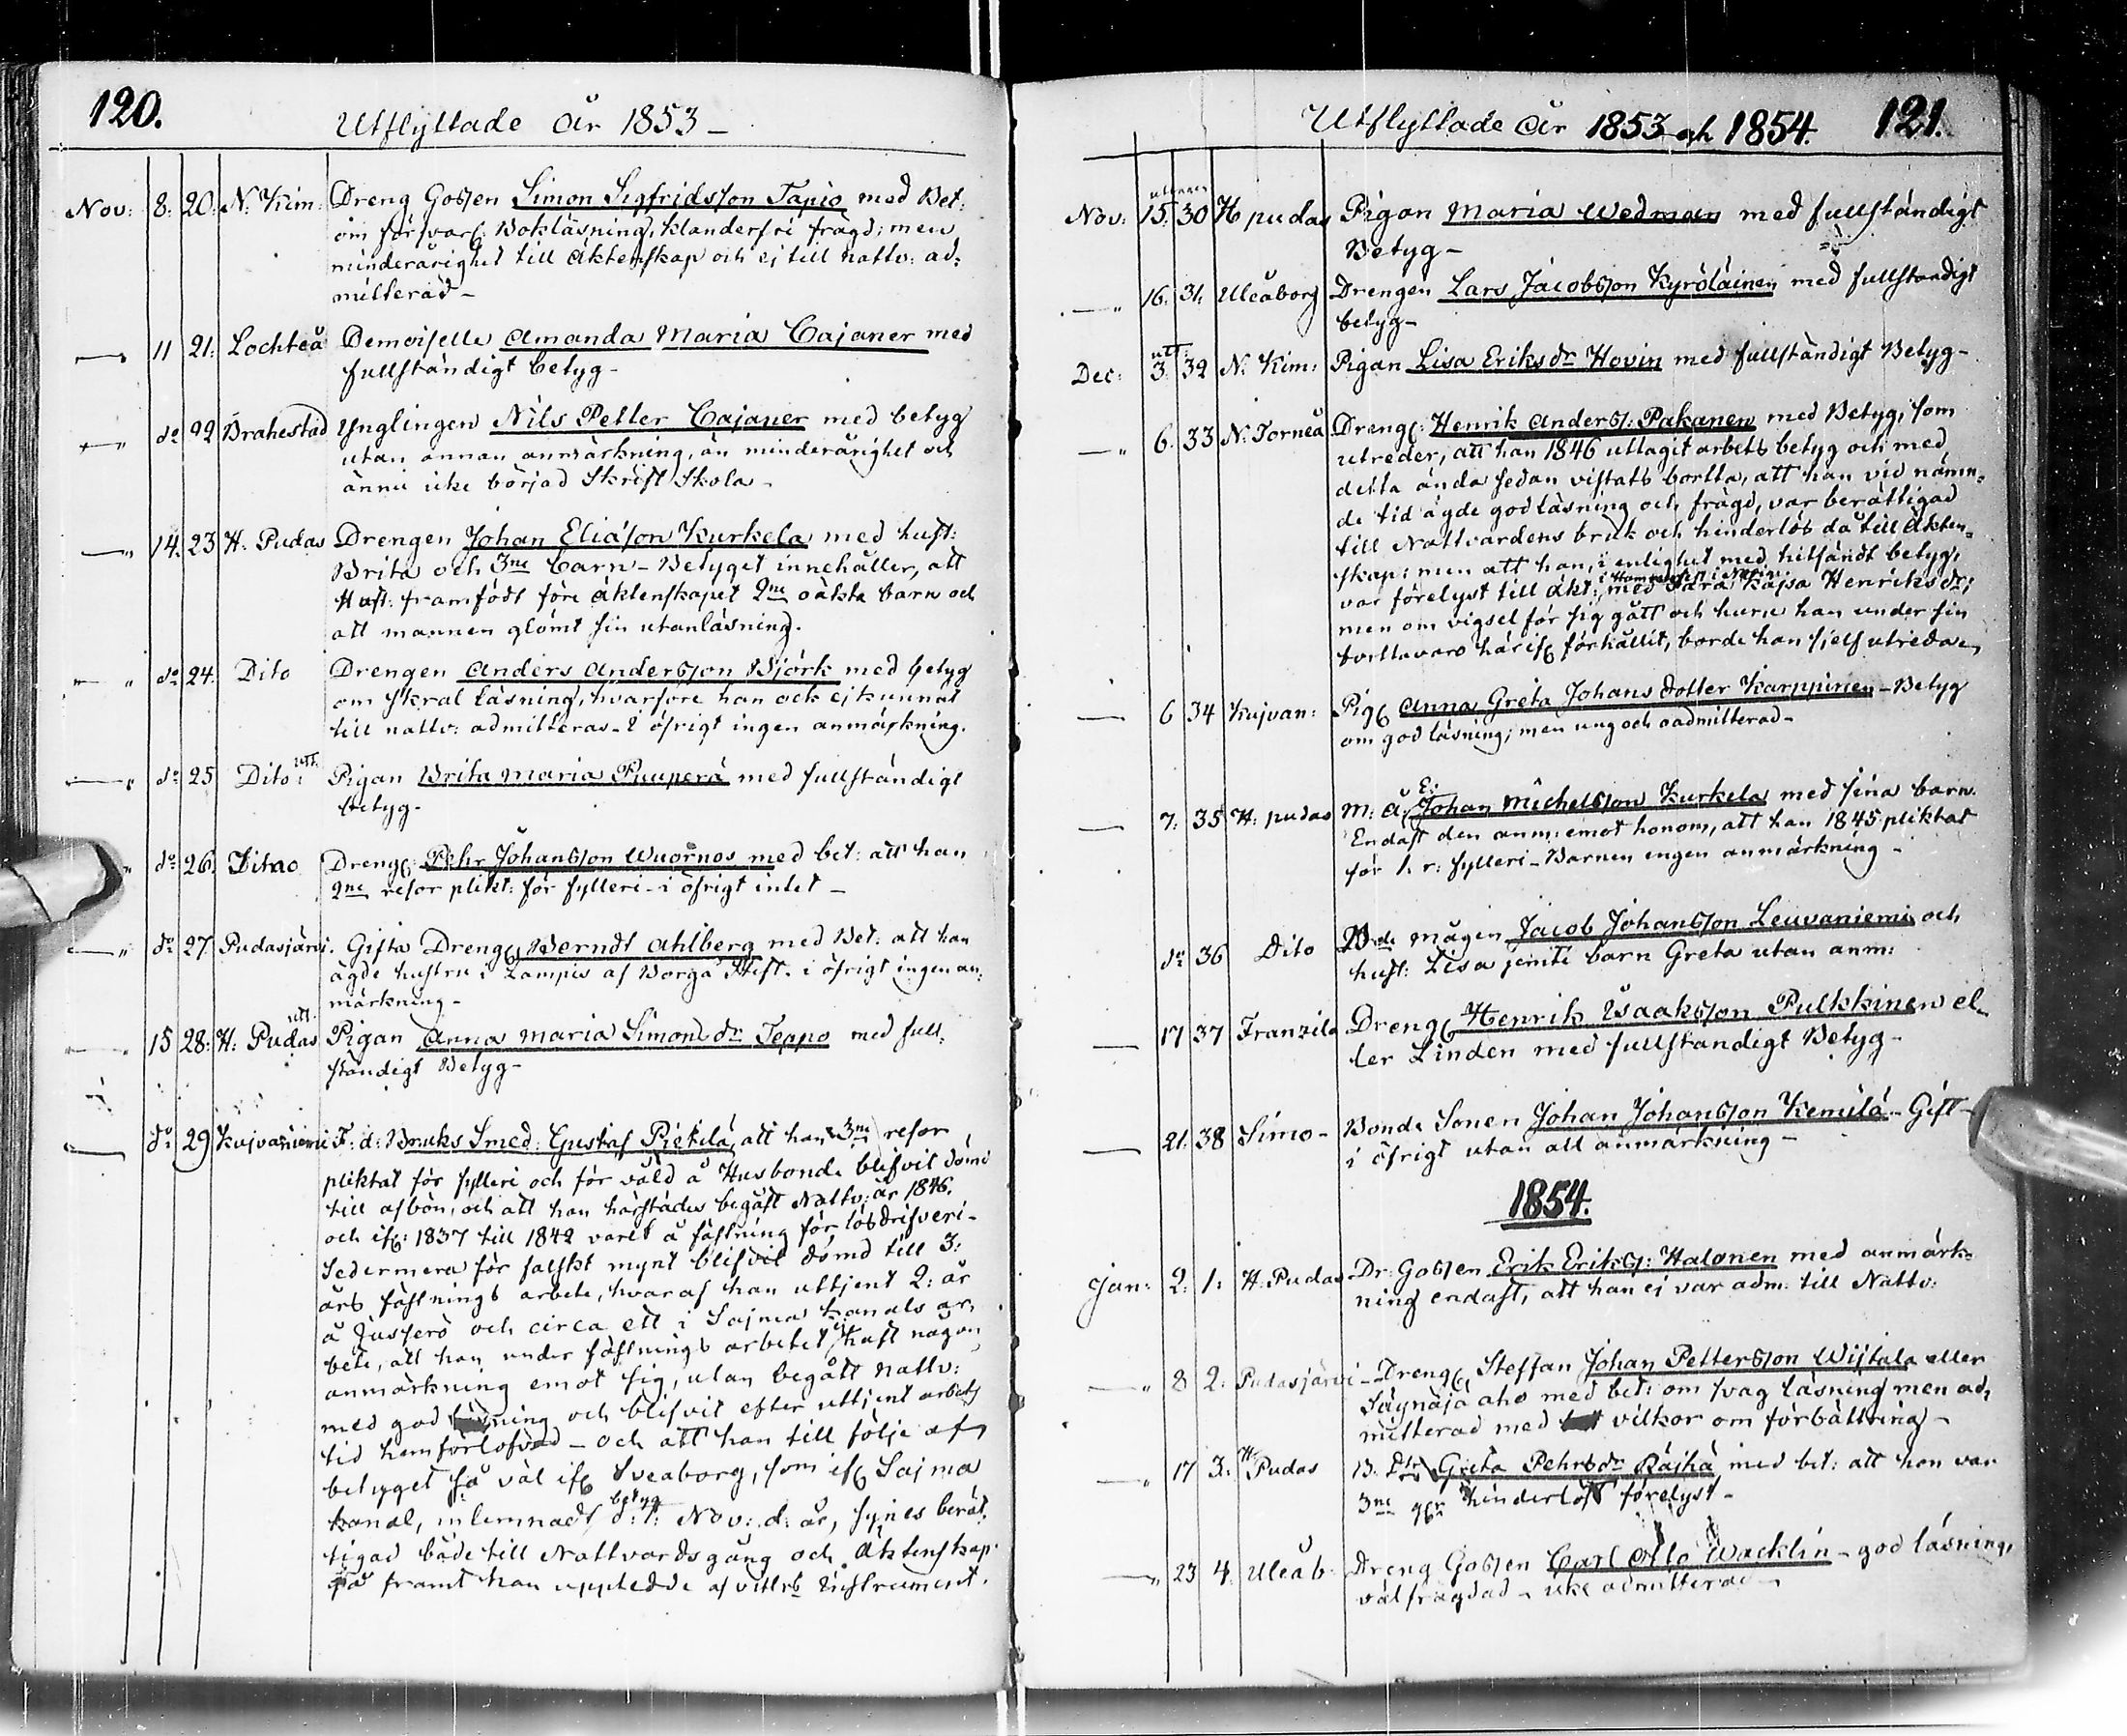 120.
Utflyttade år 1853 –
Nov: 8. 20. N. Kim: Dreng Gossen Simon Sigfridsson Tapio med Bet:
om försvarl: Bokläsning, klanderfri frägd; men
minderårighet till äktenskap och ej till nattv: ad-
mitterad –
11 21. Lochteå Demoiselle Amanda Maria Cajaner med
fullständigt betyg –
do 22 Brahestad Ynglingen Nils Petter Cajaner med betyg
utan annan anmärkning, än minderårighet och
ännu icke börjad Skrift Skola –
14. 23 H. Pudas Drengen Johan Eliasson Kurkela med hust:
Brita och 3ne barn – Betyget innehåller, att
Hust: framfödt före äktenskapet 2ne oäkta barn och
att mannen glömt sin utanläsning.
do 24. Dito Drengen Anders Andersson Björk med betyg
om skral läsning, hvarföre han ock ej kunnat
till nattv: admitteras – I öfrigt ingen anmärkning.
do 25 Dito utt. Pigan Brita Maria Puuperä med fullständigt
betyg –
do 26. Ditao Dreng: Pehr Johansson Wuornos med bet: att han
2ne resor plikt: för fylleri – i öfrigt intet –
do 27. Pudasjärvi. Gifta Dreng: Berndt Ahlberg med Bet: att han
ägde hustru i Lampis af Borgå Stift. i öfrigt ingen an-
märkning –
15 28. H. Pudas utt. Pigan Anna Maria Simonsdr Teppo med full-
ständigt Betyg –
do 29 Kuivaniemi F. d: Bruks Smed: Gustaf Pietilä, att han 3ne resor
pliktat för fylleri och för våld å Husbonde blifvit dömd
till afbön, och att han härstädes begått Nattv: år 1846.
och if: 1837 till 1842 varit å fästning för lösdrifveri –
Sedermera för falskt mynt blifvit dömd till 3:
års fästnings arbete, hvaraf han uttjent 2: år
å Jusserö och circa ett i Sajma kanals ar-
bete, att han under fästnings arbetet ej haft någon
anmärkning emot sig, utan begått nattv:
med god läsning och blifvit efter uttjent arbets
tid hemförlofvad – och att han till följe af
betyget så väl if: Sveaborg, som if: Sajma
kanal, inlemnadt betyg d: 1: Nov: d: år, synes berät-
tigad både till Nattvardsgång och Äktenskap
så framt han uppledde af vittrb Instrument.
Utflyttade år 1853 och 1854. 121.
Nov: 15. 30 H pudas Pigan Maria Wedman med fullständigt
Betyg –
16. 31. Uleåborg Drengen Lars Jacobsson Kyröläinen med fullständigt
betyg –
Dec: utt. 3. 32 N. Kim: Pigan Lisa Eriksdr Hovin med fullständigt Betyg –
6. 33 N. Torneå Dreng: Henrik Anderss: Pakanen med Betyg, som
utreder, att han 1846 uttagit arbets betyg och med
detta ända sedan vistats bortta, att han vid nämn-
de tid ägde god läsning och frägd, var berättigad
till Nattvardens bruk och hinderlös då till äkten-
skap; men att han, i enlighet med hitsändt betyg,
var förelyst till äkt: i Hammerfest i Norige med Sara Kajsa Henriksdr;
men om vigsel för sig gått och huru han under sin
bortavaro här if: förhållit, borde han sjelf utreda –
6 34 Kujvan: Pig: Anna Greta Johans dotter Karppinen – Betyg
om god läsning; men ung och oadmitterad –
7. 35 H. pudas M: Å. E: Johan Michelsson Kurkela med sina barn.
Endast den anm: emot honom, att han 1845 pliktat
för 1. r: fylleri – Barnen ingen anmärkning –
do 36 Dito Bde mågen Jacob Johansson Leuvaniemi och
hust: Lisa jemte barn Greta utan anm:
17 37 Franzila Dreng: Henrik Isaksson Pulkkinen el-
ler Linden med fullständigt Betyg –
21. 38 Simo – Bonde Sonen Johan Johansson Kemilä – Gift –
i öfrigt utan all anmärkning –
1854.
Jan: 2. 1. H. Pudas Dr: Gossen Erik Erikss: Halonen med anmärk-
ning endast, att han ej var adm. till Nattv:
8 2. Pudasjärvi – Dreng: Steffan Johan Pettersson Wijtala eller
Säynäjä aho med bet: om svag läsning men ad-
mitterad med vilkor om förbättring –
17 3. H. Pudas B. Dtr Greta Pehrsdr Räihä med bet: att hon var
3ne ggr hinderlöst förelyst –
23 4. Uleåb. Dreng Gossen Carl Otto Wacklin – god läsning,
väl frägdad – icke admitterad –